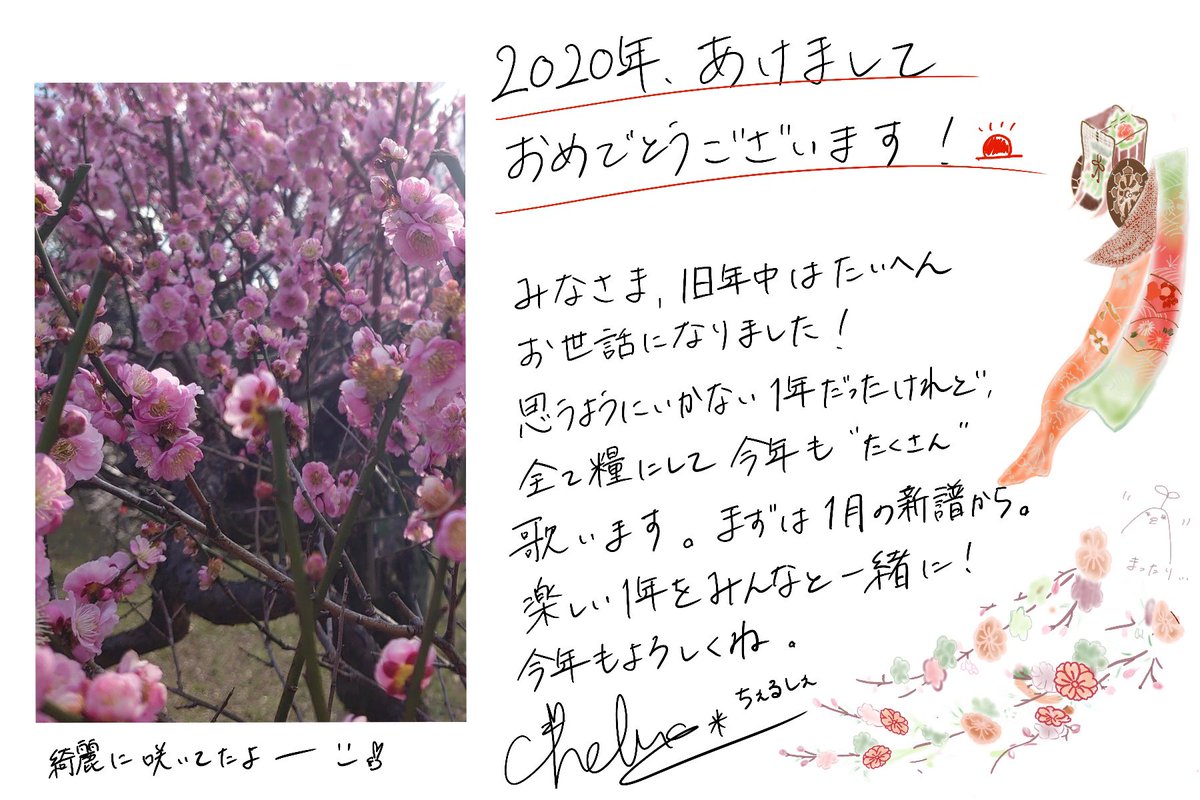 2020年、あけまして
おめでとうございます!
みなさま, 旧年中はたいへん
お世話になりました!
思うようにいかない1年だったけれど,
全て糧にして今年も"たくさん"
歌います。まずは1月の新譜から。
楽しい1年をみんなと一緒に!
今年もよろしくね。
ちぇるしぇ
まったり..
綺麗に咲いてたよー